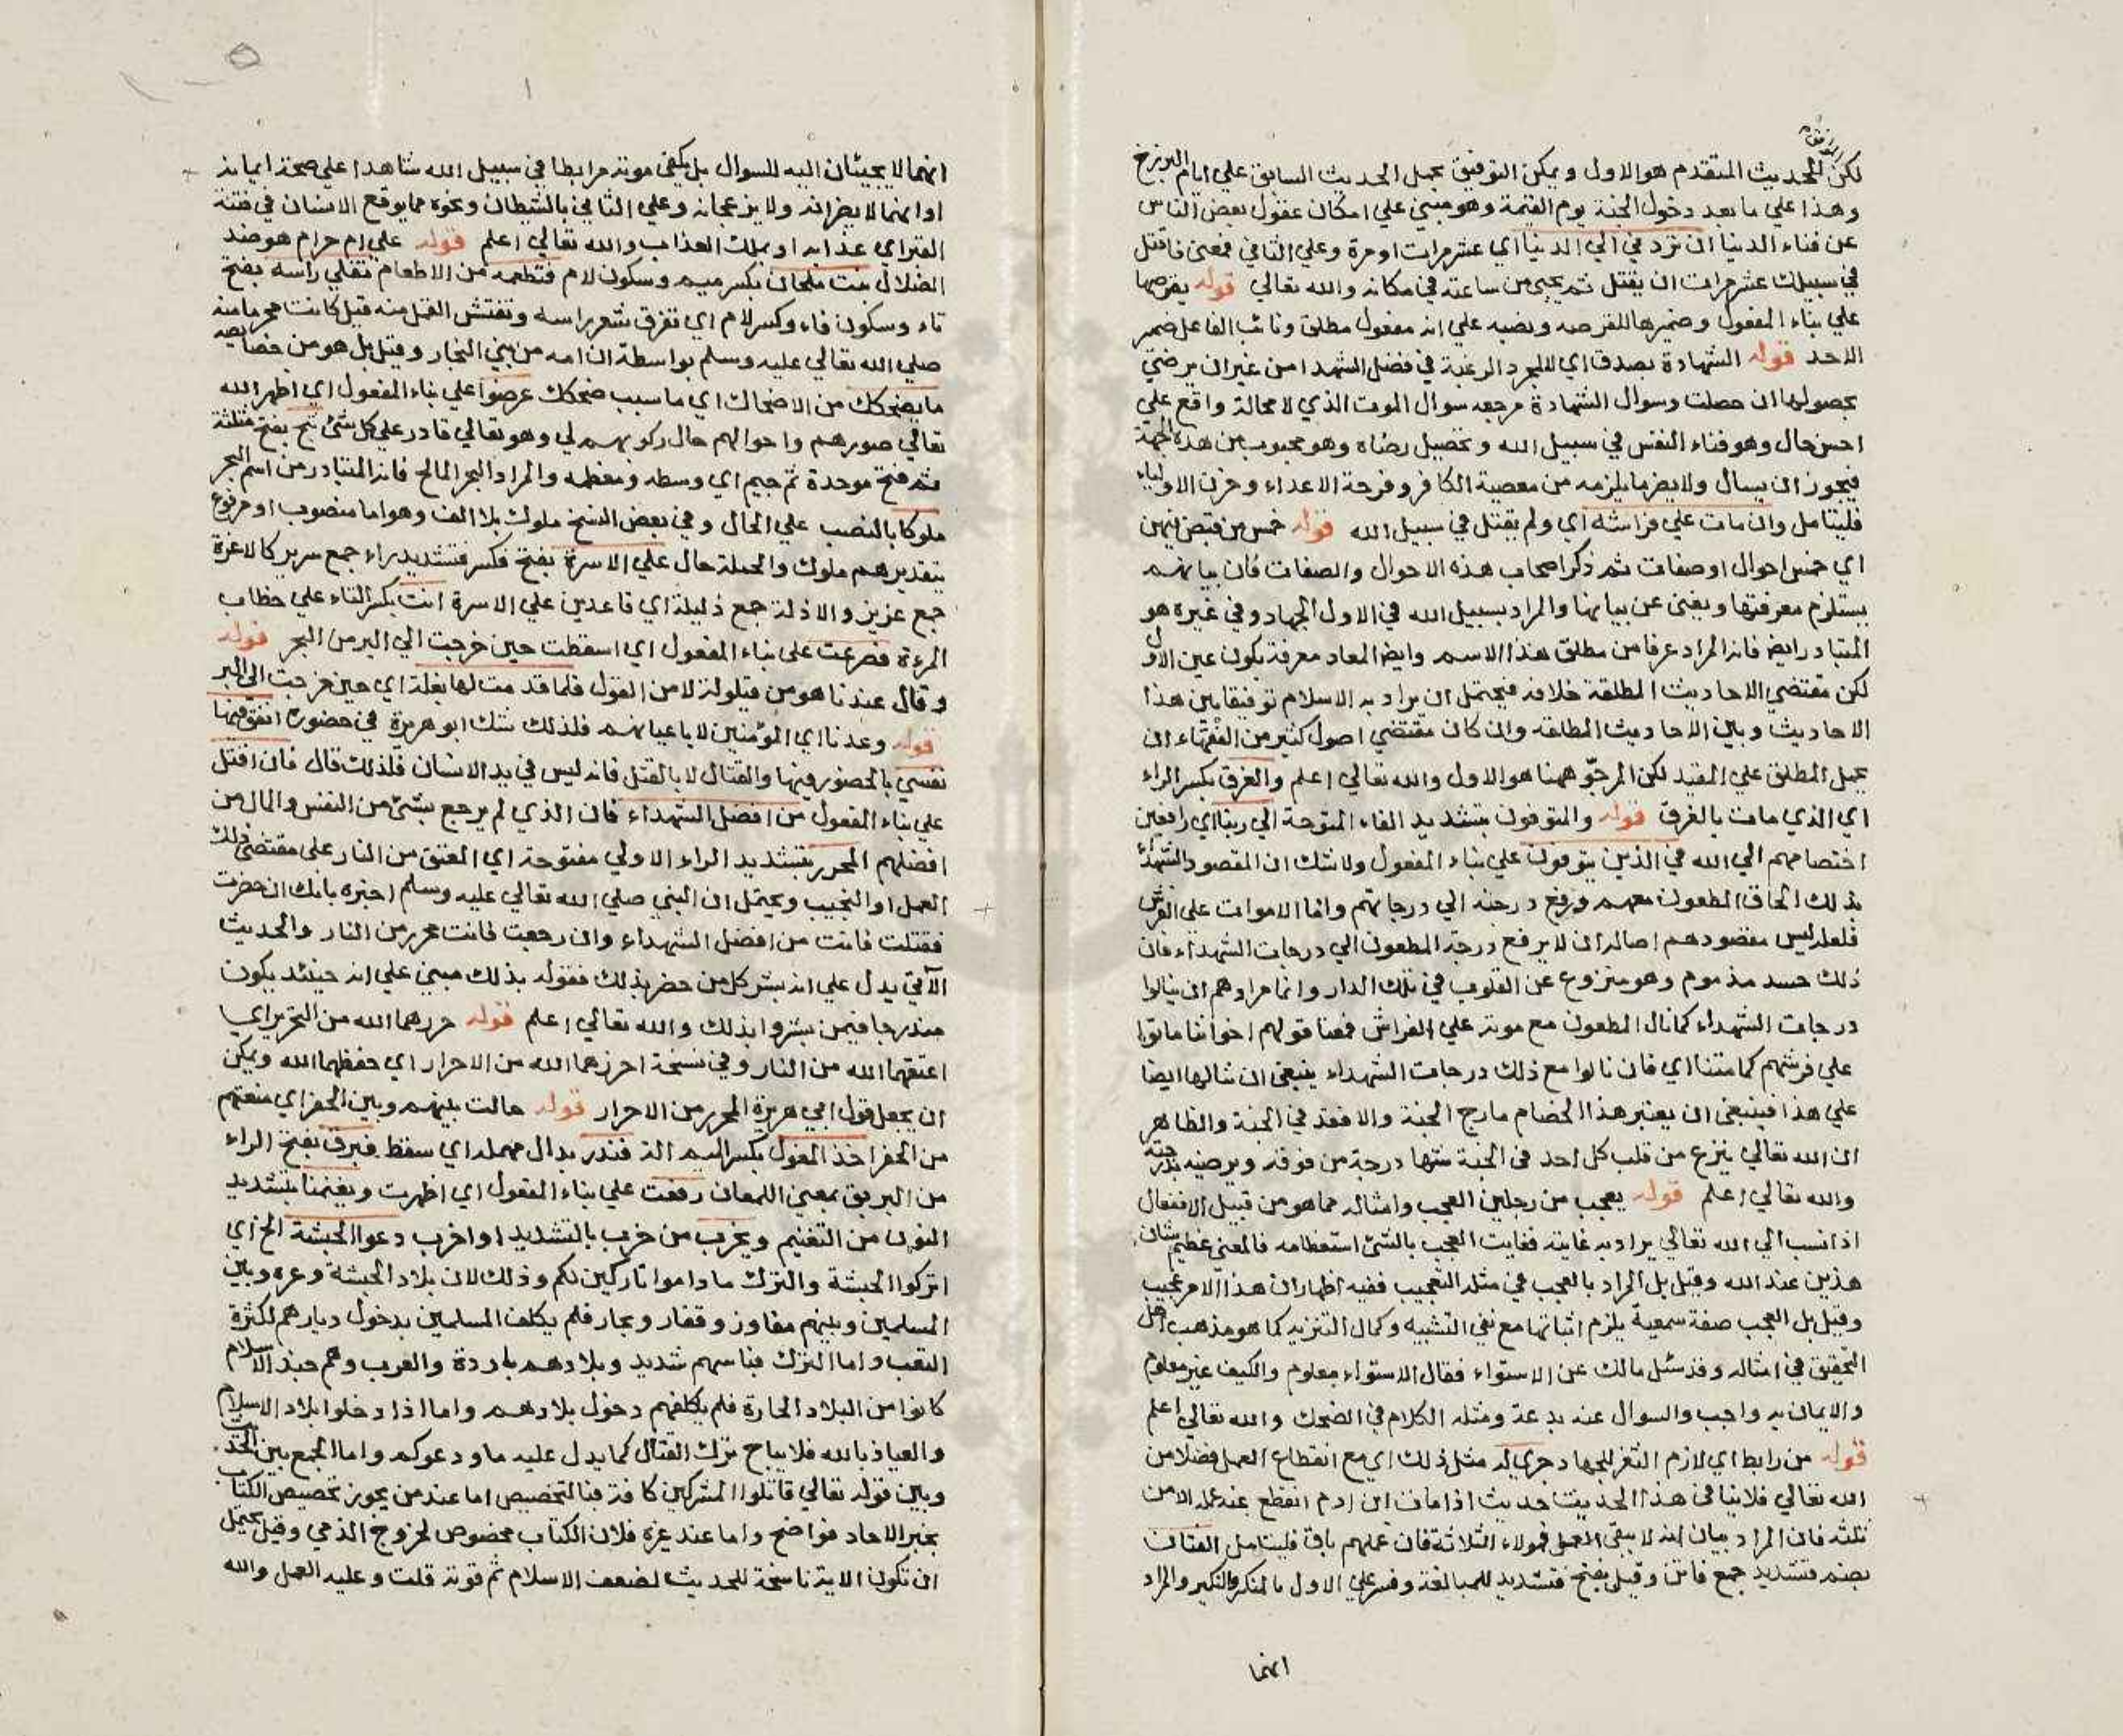 الموافق
لكن للحديث المتقدم هو الاول ويمكن التوفيق بحمل الحديث السابق علي ايام البرزخ
وهذا علي ما بعد دخول الجنة يوم القيمة وهو مبني علي امكان عقول بعض الناس
عن فناء الدنيا ان تردني الي الدنيا اي عشر مرات او مرة وعلي الثاني فمعنى فاقتل
في سبيلك عشر مرات ان يقتل ثم يحيى من ساعته في مكانه والله تعالي قوله يقرصها
علي بناء المفعول وضميرها للقرصه ونصبه علي انه مفعول مطلق ونائب الفاعل ضمير
الاحد قوله الشهادة بصدق اي لا لمجرد الرغبة في فضل الشهدا من غير ان يرضى
بحصولها ان حصلت وسوال الشهادة مرجعه سوال الموت الذي لا محالة واقع علي
احسن حال وهو فناء النفس في سبيل الله وتحصيل رضاه وهو محبوب من هذه الجهة
فيجوز ان يسال ولا يضر ما يلزمه من معصية الكافر وفرحة الاعداء وحزن الاولياء
فليتامل وان مات علي فراشه اي ولم يقتل في سبيل الله قوله خمس من قبض فيهن
اي خمس احوال او صفات ثم ذكر اصحاب هذه الاحوال والصفات فان بيانهم
يستلزم معرفتها ويغنى عن بيانها والمراد بسبيل الله في الاول الجهاد وفي غيره هو
المتبادر ايض فانه المراد عرفا من مطلق هذا الاسم وايض المعاد معرفة يكون عين الاول
لكن مقتضي الاحاديث المطلقة خلافه فيحتمل ان يراد به الاسلام توفيقا بين هذا
الاحاديث وبين الاحاديث المطلقه وان كان مقتضي اصول كثير من الفقهاء ان
يحمل المطلق علي المقيد لكن المرجو ههنا هو الاول والله تعالي اعلم والغرق بكسر الراء
اي الذي مات بالغرق قوله والمتوفون بتشديد الفاء المتوحة الي ربنا اي رافعين
اختصامهم الي الله في الذين يتوفون علي بناء المفعول ولا شك ان المقصود الشهداء
بذلك الحاق المطعون معهم ورفع درجته الي درجاتهم واما الاموات علي الفرش
فلعله ليس مقصودهم اصالة ان لا يرفع درجة المطعون الي درجات الشهداء فان
ذلك حسد مذموم وهو منزوع عن القلوب في تلك الدار وانما مرادهم ان ينالوا
درجات الشهداء كما نال المطعون مع موته علي الفراش فمعنا قولهم اخواننا ماتوا
علي فرشهم كما متنا اي فان نالوا مع ذلك درجات الشهداء ينبغي ان ننالها ايضا
علي هذا فينبغي ان يعتبر هذا الخصام خارج الجنة والا فقد في الجنة والظاهر
ان الله تعالي ينزع من قلب كل احد في الجنة شتها درجة من فوقه ويرضيه بدرجته
والله تعالي اعلم قوله يعجب من رجلين العجب وامثاله مما هو من قبيل الانفعال
اذا نسب الي الله تعالي يراد به غايته فغايت العجب بالشئ استعظامه فالمعنى عظيم شان
هذين عند الله وقيل بل المراد بالعجب في مثله التعجيب ففيه اظهار ان هذا الامر عجيب
وقيل بل العجب صفة سمعية يلزم اثباتها مع نفي التشبيه وكمال التنزيه كما هو مذهب اهل
التحقيق في امثاله وقد سئل مالك عن الاستواء فقال الاستواء معلوم والكيف غير معلوم
والايمان به واجب والسوال عنه بدعة ومثله الكلام في الضحك والله تعالي اعلم
قوله من رابط اي لازم الثغر للجهاد جرى له مثل ذلك اي مع انقطاع العمل فضلا من
الله تعالي فلا ينافى هذا الحديث حديث اذا مات ابن ادم انقطع عنه عمله الا من
ثلثه فان المراد بيان انه لا يبقي العمل لهولاء الثلاثة فان عملهم باق فليتامل الفتان
بضم فتشديد جمع فاتن وقيل بفتح فتشديد للمبالغة وفسر علي الاول بالمنكر والنكير والمراد
انهما
انهما لا يجيئان اليه للسوال بل يكفى موته مرابطا في سبيل الله شاهدا علي صحة ايمانه
او انهما لا يضرانه ولا يزعجانه وعلي الثاني بالشيطان ونحوه مما يوقع الانسان في فتنة
القبر اي عذابه او بملك العذاب والله تعالي اعلم قوله علي ام حرام هو ضد
الضلال بنت ملحان بكسر ميم وسكون لام فتطعمه من الاطعام تفلي راسه بفتح
تاء وسكون فاء وكسر لام اي تفرق شعر راسه وتفتش القمل منه قيل كانت محرما منه
صلي الله تعالي عليه وسلم بواسطة ان امه من بني النجار وقيل بل هو من خصايصه
ما يضحكك من الاضحاك اي ما سبب ضحكك عرضوا علي بناء المفعول اي اظهر الله
تعالي صورهم واحوالهم حال ركوبهم لي وهو تعالي قادر علي كل شئ ثبج بفتح مثلثة
ثم فتح موحدة ثم جيم اي وسطه ومعظمه والمراد البحر المالح فانه المتبادر من اسم البحر
ملوكا بالنصب علي الحال وفي بعض النسخ ملوك بلا الف وهو اما منصوب او مرفوع
بتقدير هم ملوك والجملة حال علي الاسرة بفتح فكسر فتشديد راء جمع سرير كالاعزة
جمع عزيز والاذلة جمع ذليلة اي قاعدين علي الاسرة انت بكسر التاء علي خطاب
المرءة فصرعت على بناء المفعول اي اسقطت حين خرجت الي البر من البحر قوله
وقال عندنا هو من قيلولة لا من القول فلما قدمت لها بغلة اي حين خرجت الى البر
قوله وعدنا اي المؤمنين لا باعيانهم فلذلك شك ابو هريرة في حضوره انفق فيها
نفسي بالحضور فيها والقتال لا بالقتل فانه ليس في يد الانسان فلذلك قال فان اقتل
علي بناء المفعول من افضل الشهداء فان الذي لم يرجع بشئ من النفس والمال من
افضلهم المحرر بتشديد الراء الاولي مفتوحة اي المعتق من النار على مقتضى ذلك
العمل او النجيب ويحتمل ان النبي صلي الله تعالي عليه وسلم اخبره بانك ان حضرت
فقتلت فانت من افضل الشهداء وان رجعت فانت محرر من النار والحديث
الآتي يدل علي انه بشر كل من حضر بذلك فقوله بذلك مبني علي انه حينئذ يكون
مندرجا فيمن بشروا بذلك والله تعالي اعلم قوله حررهما الله من التحرير اي
اعتقهما الله من النار وفي نسخة احرزهما الله من الاحراز اي حفظهما الله ويمكن
ان يجعل قول ابي هريرة المحرر من الاحراز قوله حالت بينهم وبين الحفر اي منعتهم
من الحفر اخذ المعول بكسر الميم الة فندر بدال مهمله اي سقط فبرق بفتح الراء
من البريق بمعنى اللمعان رفعت علي بناء المفعول اي اظهرت ويغنمنا بتشديد
النون من التغنيم ويخرب من خرب بالتشديد او اخرب دعوا الحبشة الخ اي
اتركوا الحبشة والترك ما داموا تاركين لكم وذلك لان بلاد الحبشة وعره وبين
المسلمين وبينهم مفاوز وقفار وبحار فلم يكلف المسلمين بدخول ديارهم لكثرة
التعب واما الترك فباسهم شديد وبلادهم باردة والعرب وهم جند الاسلام
كانوا من البلاد الحارة فلم يكلفهم دخول بلادهم واما اذا دخلوا بلاد الاسلام
والعياذ بالله فلا يباح ترك القتال كما يدل عليه ما ودعوكم واما الجمع بين الحديث
وبين قوله تعالي قاتلوا المشركين كافة فبالتخصيص اما عند من يجوز تخصيص الكتاب
بخبر الاحاد فواضح واما عند غيره فلان الكتاب مخصوص لخروج الذمي وقيل يحتمل
ان تكون الاية ناسخة للحديث لضعف الاسلام ثم قوته قلت وعليه العمل والله